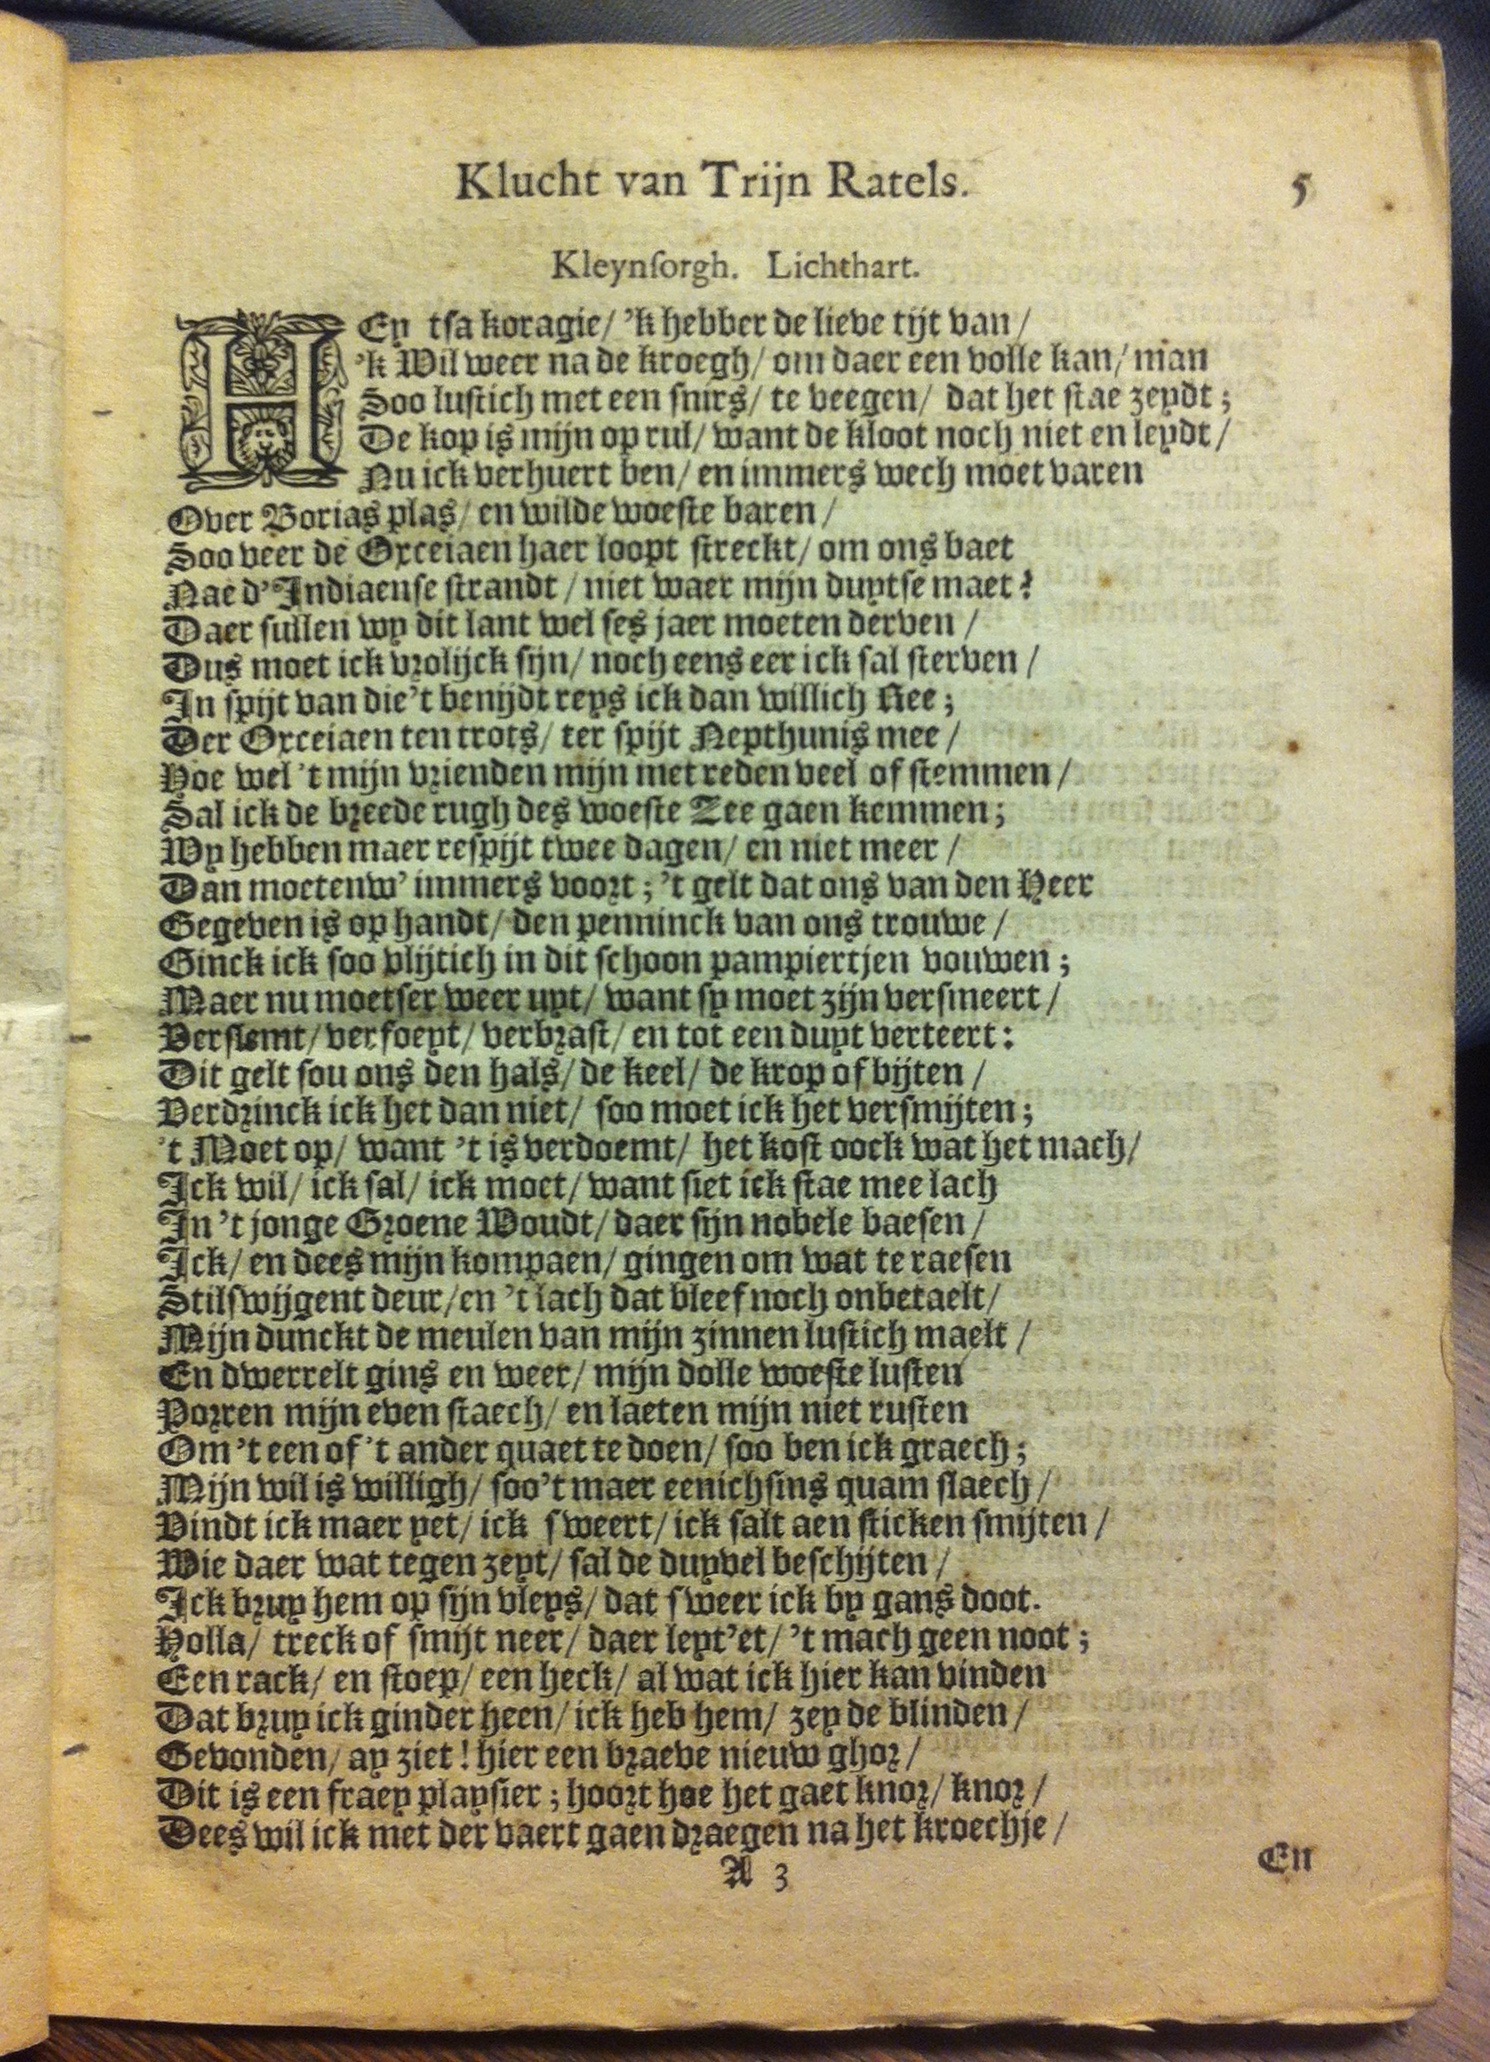 Klucht van Trijn Ratels. 5
Kleynsorgh. Lichthart.
HEy tsa koragie/ 'k hebber de lieve tijt van/
'k Wil weer na de kroegh/ om daer een volle kan/ man
Soo lustich met een snirs/ te veegen/ dat het stae zeydt;
De kop is mijn op rul/ want de kloot noch niet en leydt/
Nu ick verhuert ben/ en immers wech moet varen
Over Borias plas/ en wilde woeste baren/
Soo veer de Oxceiaen haer loopt streckt/ om ons baet
Nae d'Indiaense strandt/ niet waer mijn duytse maet?
Daer sullen wy dit lant wel ses jaer moeten derven/
Dus moet ick vrolijck sijn/ noch eens eer ick sal sterven/
In spijt van die't benijdt reys ick dan willich Ree;
Der Oxceiaen ten trots/ ter spijt Nepthunis mee/
Hoe wel 't mijn vrienden mijn met reden veel of stemmen/
Sal ick de breede rugh des woeste Zee gaen kemmen;
Wy hebben maer respijt twee dagen/ en niet meer/
Dan moetenw' immers voort; 't gelt dat ons van den Heer
Gegeven is op handt/ den penninck van ons trouwe/
Ginck ick soo vlijtich in dit schoon pampiertjen vouwen;
Maer nu moetser weer uyt/ want sy moet zijn versmeert/
Verslemt/ versoeyt/ verbrast/ en tot een duyt verteert:
Dit gelt sou ons den hals/ de keel/ de krop of bijten/
Verdrinck ick het dan niet/ soo moet ick het versmijten;
't Moet op/ want 't is verdoemt/ het kost oock wat het mach/
Ick wil/ ick sal/ ick moet/ want siet ick stae mee lach
In 't jonge Groene Woudt/ daer sijn nobele baesen/
Ick/ en dees mijn kompaen/ gingen om wat te raesen
Stilswijgent deur/ en 't lach dat bleef noch onbetaelt/
Mijn dunckt de meulen van mijn zinnen lustich maelt/
En dwerrelt gins en weer/ mijn dolle woeste lusten
Porren mijn even staech/ en laeten mijn niet rusten
Om 't een of 't ander quaet te doen/ soo ben ick graech;
Mijn wil is willigh/ soo't maer eenichsins quam slaech/
Vindt ick maer yet/ ick sweert/ ick salt aen sticken smijten/
Wie daer wat tegen zeyt/ sal de duyvel beschijten/
Ick bruy hem op sijn vleys/ dat sweer ick by gans doot.
Holla/ treck of smijt neer/ daer leyt'et/ 't mach geen noot;
Een rack/ en stoep/ een heck/ al wat ick hier kan vinden
Dat bruy ick ginder heen/ ick heb hem/ zey de blinden/
Gevonden/ ay ziet! hier een braeve nieuw ghor/
Dit is een fraey playsier; hoort hoe het gaet knor/ knor/
Dees wil ick met der vaert gaen draegen na het kroechje/
A 3 En